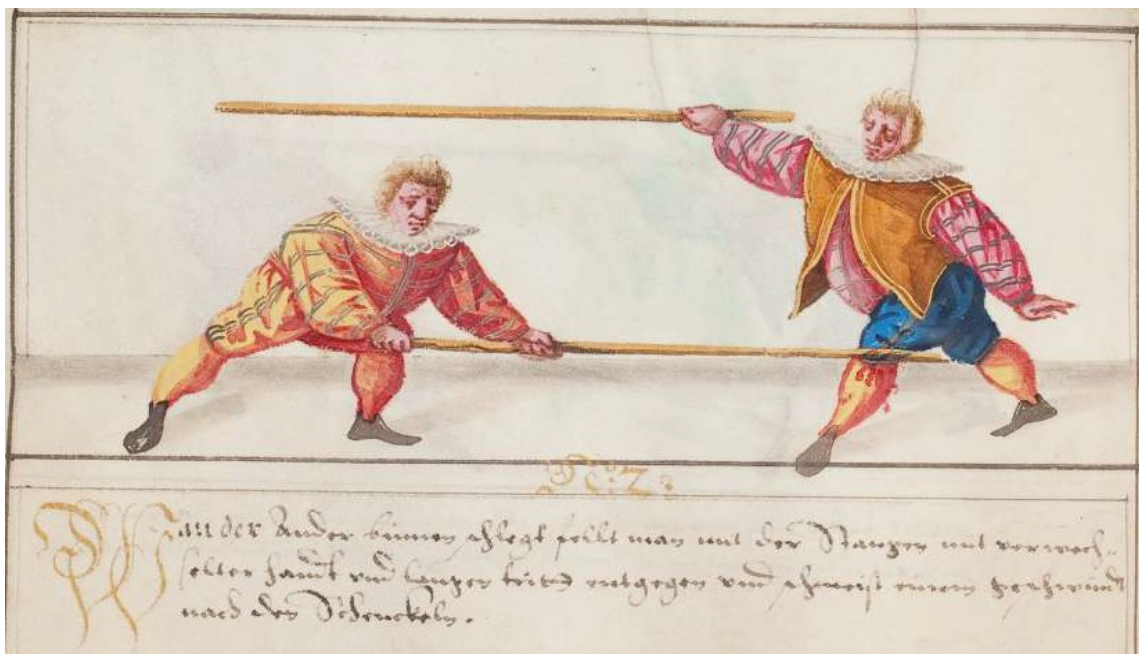 Wan der Ander binnen schlegt fellt man mit der Stangen mit verwech-
selter handt vnd langen tritt entgegen vnd schmeist einem geschwindt
nach den Schenckeln.